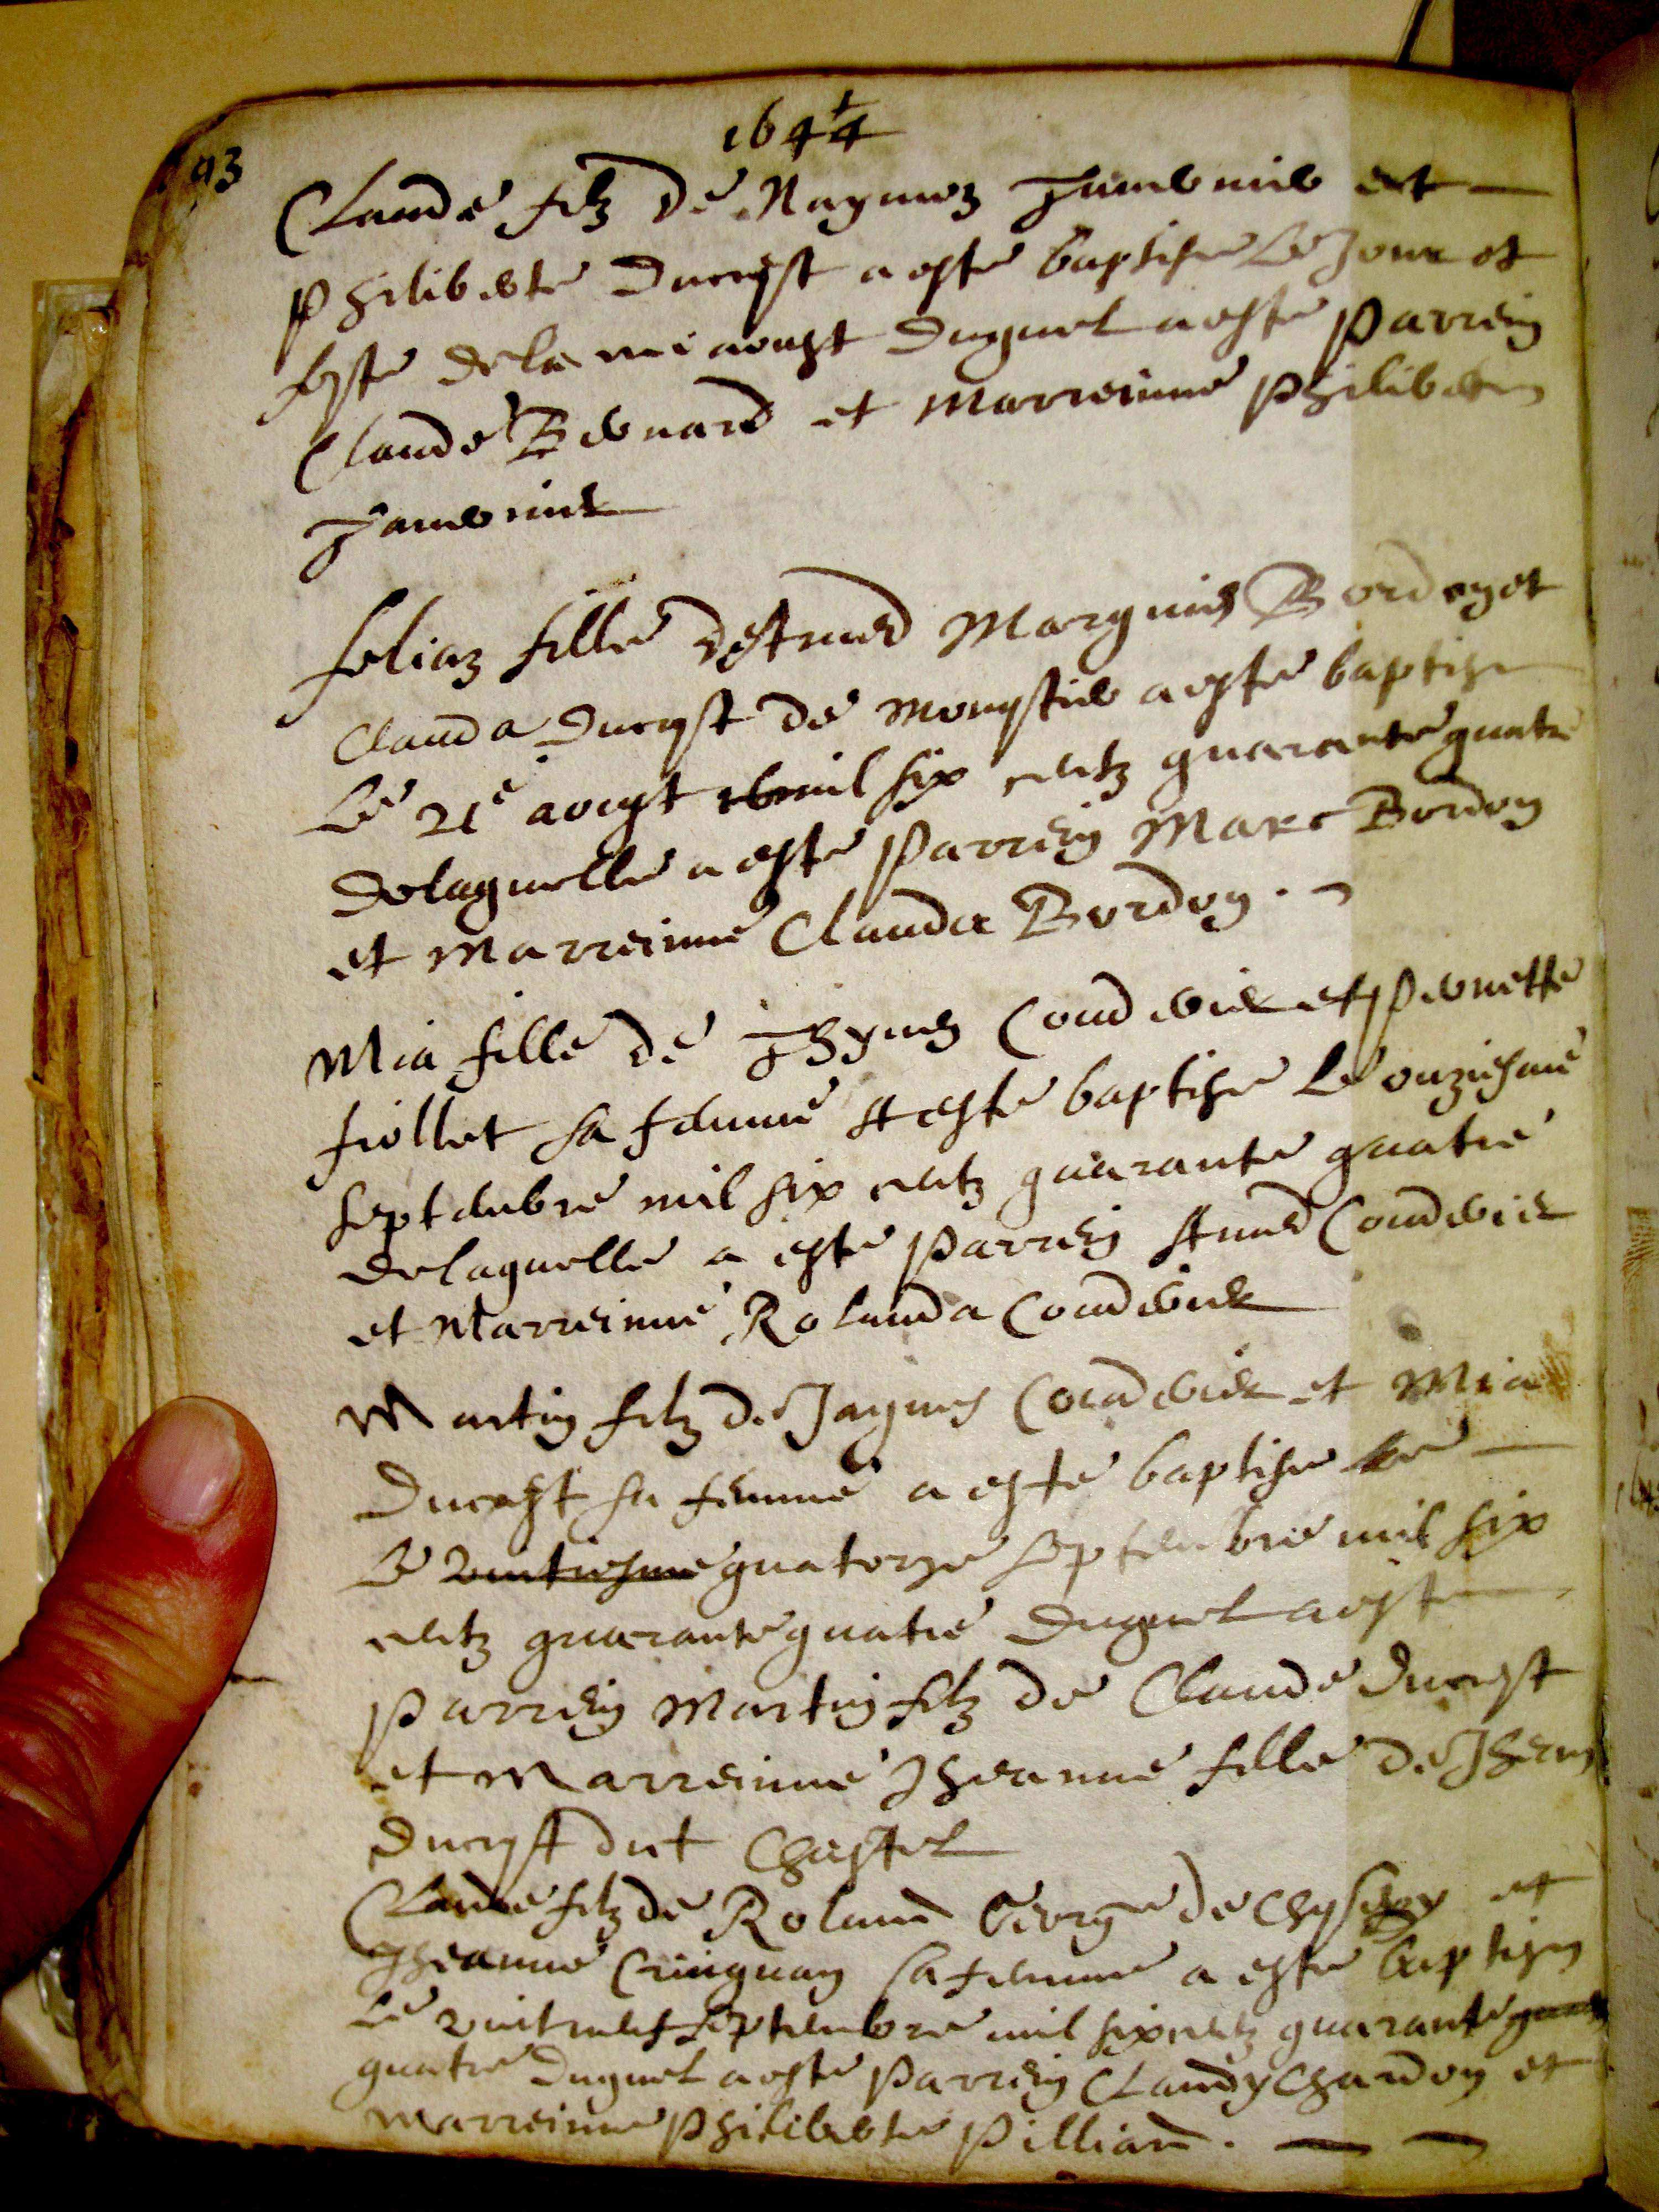 1644
93
Claude filz de Naymoz Jamermier et
Philiberte Ducrest a esté baptisé le Jour et
feste de la mi aoust duquel a esté Parrein
Claude Bernard et Marreinne Philiberte
Jamermier
fille d'Estined Marguin Bordon et
Clauda Ducrest de Monestier a esté baptisé
Le 21e aougst mil six centz quarante quatre
delaquelle a esté Parrein Marc Bordon
et Marreinne Clauda Bordon
Mia fille de Cordevier et Pernette
Follet sa femme A esté baptisé Le onziesme
septembre mil six centz quarante quatre
delaquelle a esté Parrein Amed Cordevier
et Marreinne Rolanda Cordevier
Martin filz de Jaques Cordevier et Mia
Ducrest sa femme a esté baptisé
Le quatorze septembre mil six
centz quarante quatre duquel a esté
Parrein Martin filz de Claude Ducrest
et Marreinne Jheanne fille de Jhean
Ducrest dict Chastel
Claude filz de Roland George de et
Jheanne sa femme a esté baptisé
Le vint neuf septembre mil six centz quarante
quatre duquel a esté Parrein Claudy Chardon et
Marreinne Philiberte Pilliard